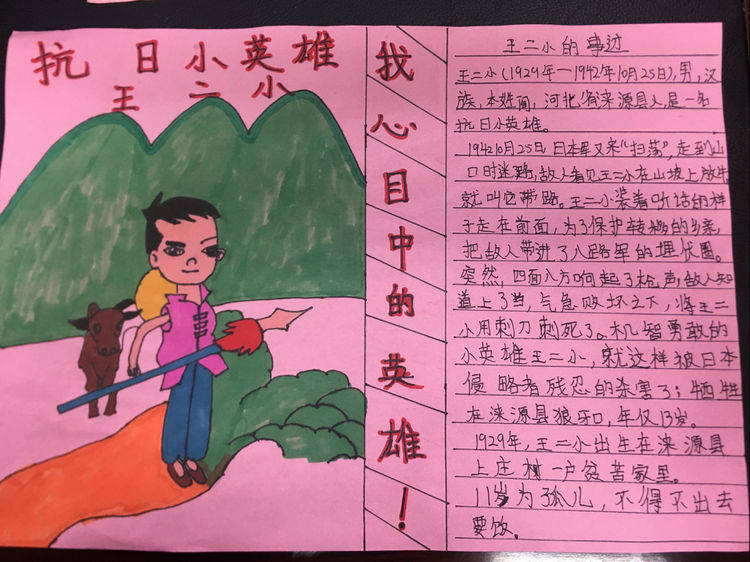 抗日小英雄
王二小
我心目中的英雄！
王二小的事迹
王二小(1929年—1942年10月25日),男,汉
族,本姓阎,河北省涞源县人,是一名
抗日小英雄。
194210月25日日本军又来“扫荡”,走到山
口时迷路,敌人看见王二小在山坡上放牛
就叫他带路。王二小装着听话的样
子走在前面,为了保护转移的乡亲,
把敌人带进了八路军的埋伏圈。
突然,四面八方响起了枪声,敌人知
道上了当,气急败坏之下,将王二
小用刺刀刺死了。机智勇敢的
小英雄王二小,就这样被日本
侵略者残忍的杀害了;牺牲
在涞源县狼牙口,年仅13岁。
1929年,王二小出生在涞源县
上庄村一户贫苦家里。
11岁为孤儿,不得不出去
要饭。